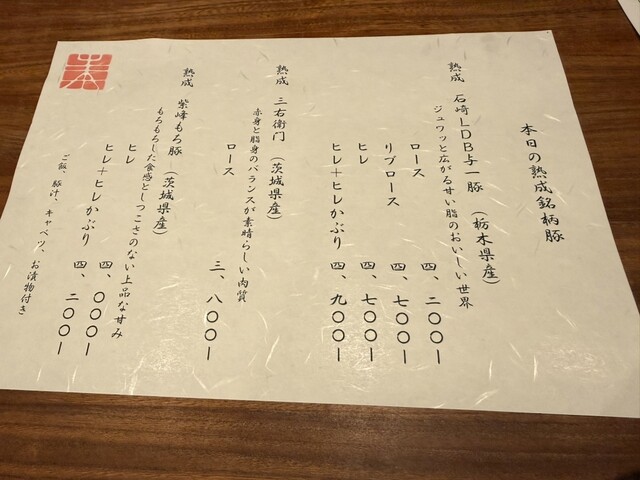 本日の熟成銘柄豚
熟成 石崎LDB与一豚(栃木県産)
ジュワッと広がる甘い脂のおいしい世界
ロース 四、二〇〇ー
リブロース 四、七〇〇ー
ヒレ 四、七〇〇ー
ヒレ+ヒレかぶり 四、九〇〇ー
熟成 三右衛門(茨城県産)
赤身と脂身のバランスが素晴らしい肉質
ロース 三、八〇〇ー
熟成 紫峰もろ豚(茨城県産)
もろもろした食感としつこさのない上品な甘み
ヒレ 四、〇〇〇ー
ヒレ+ヒレかぶり 四、二〇〇ー
ご飯、豚汁、キャベツ、お漬物付き